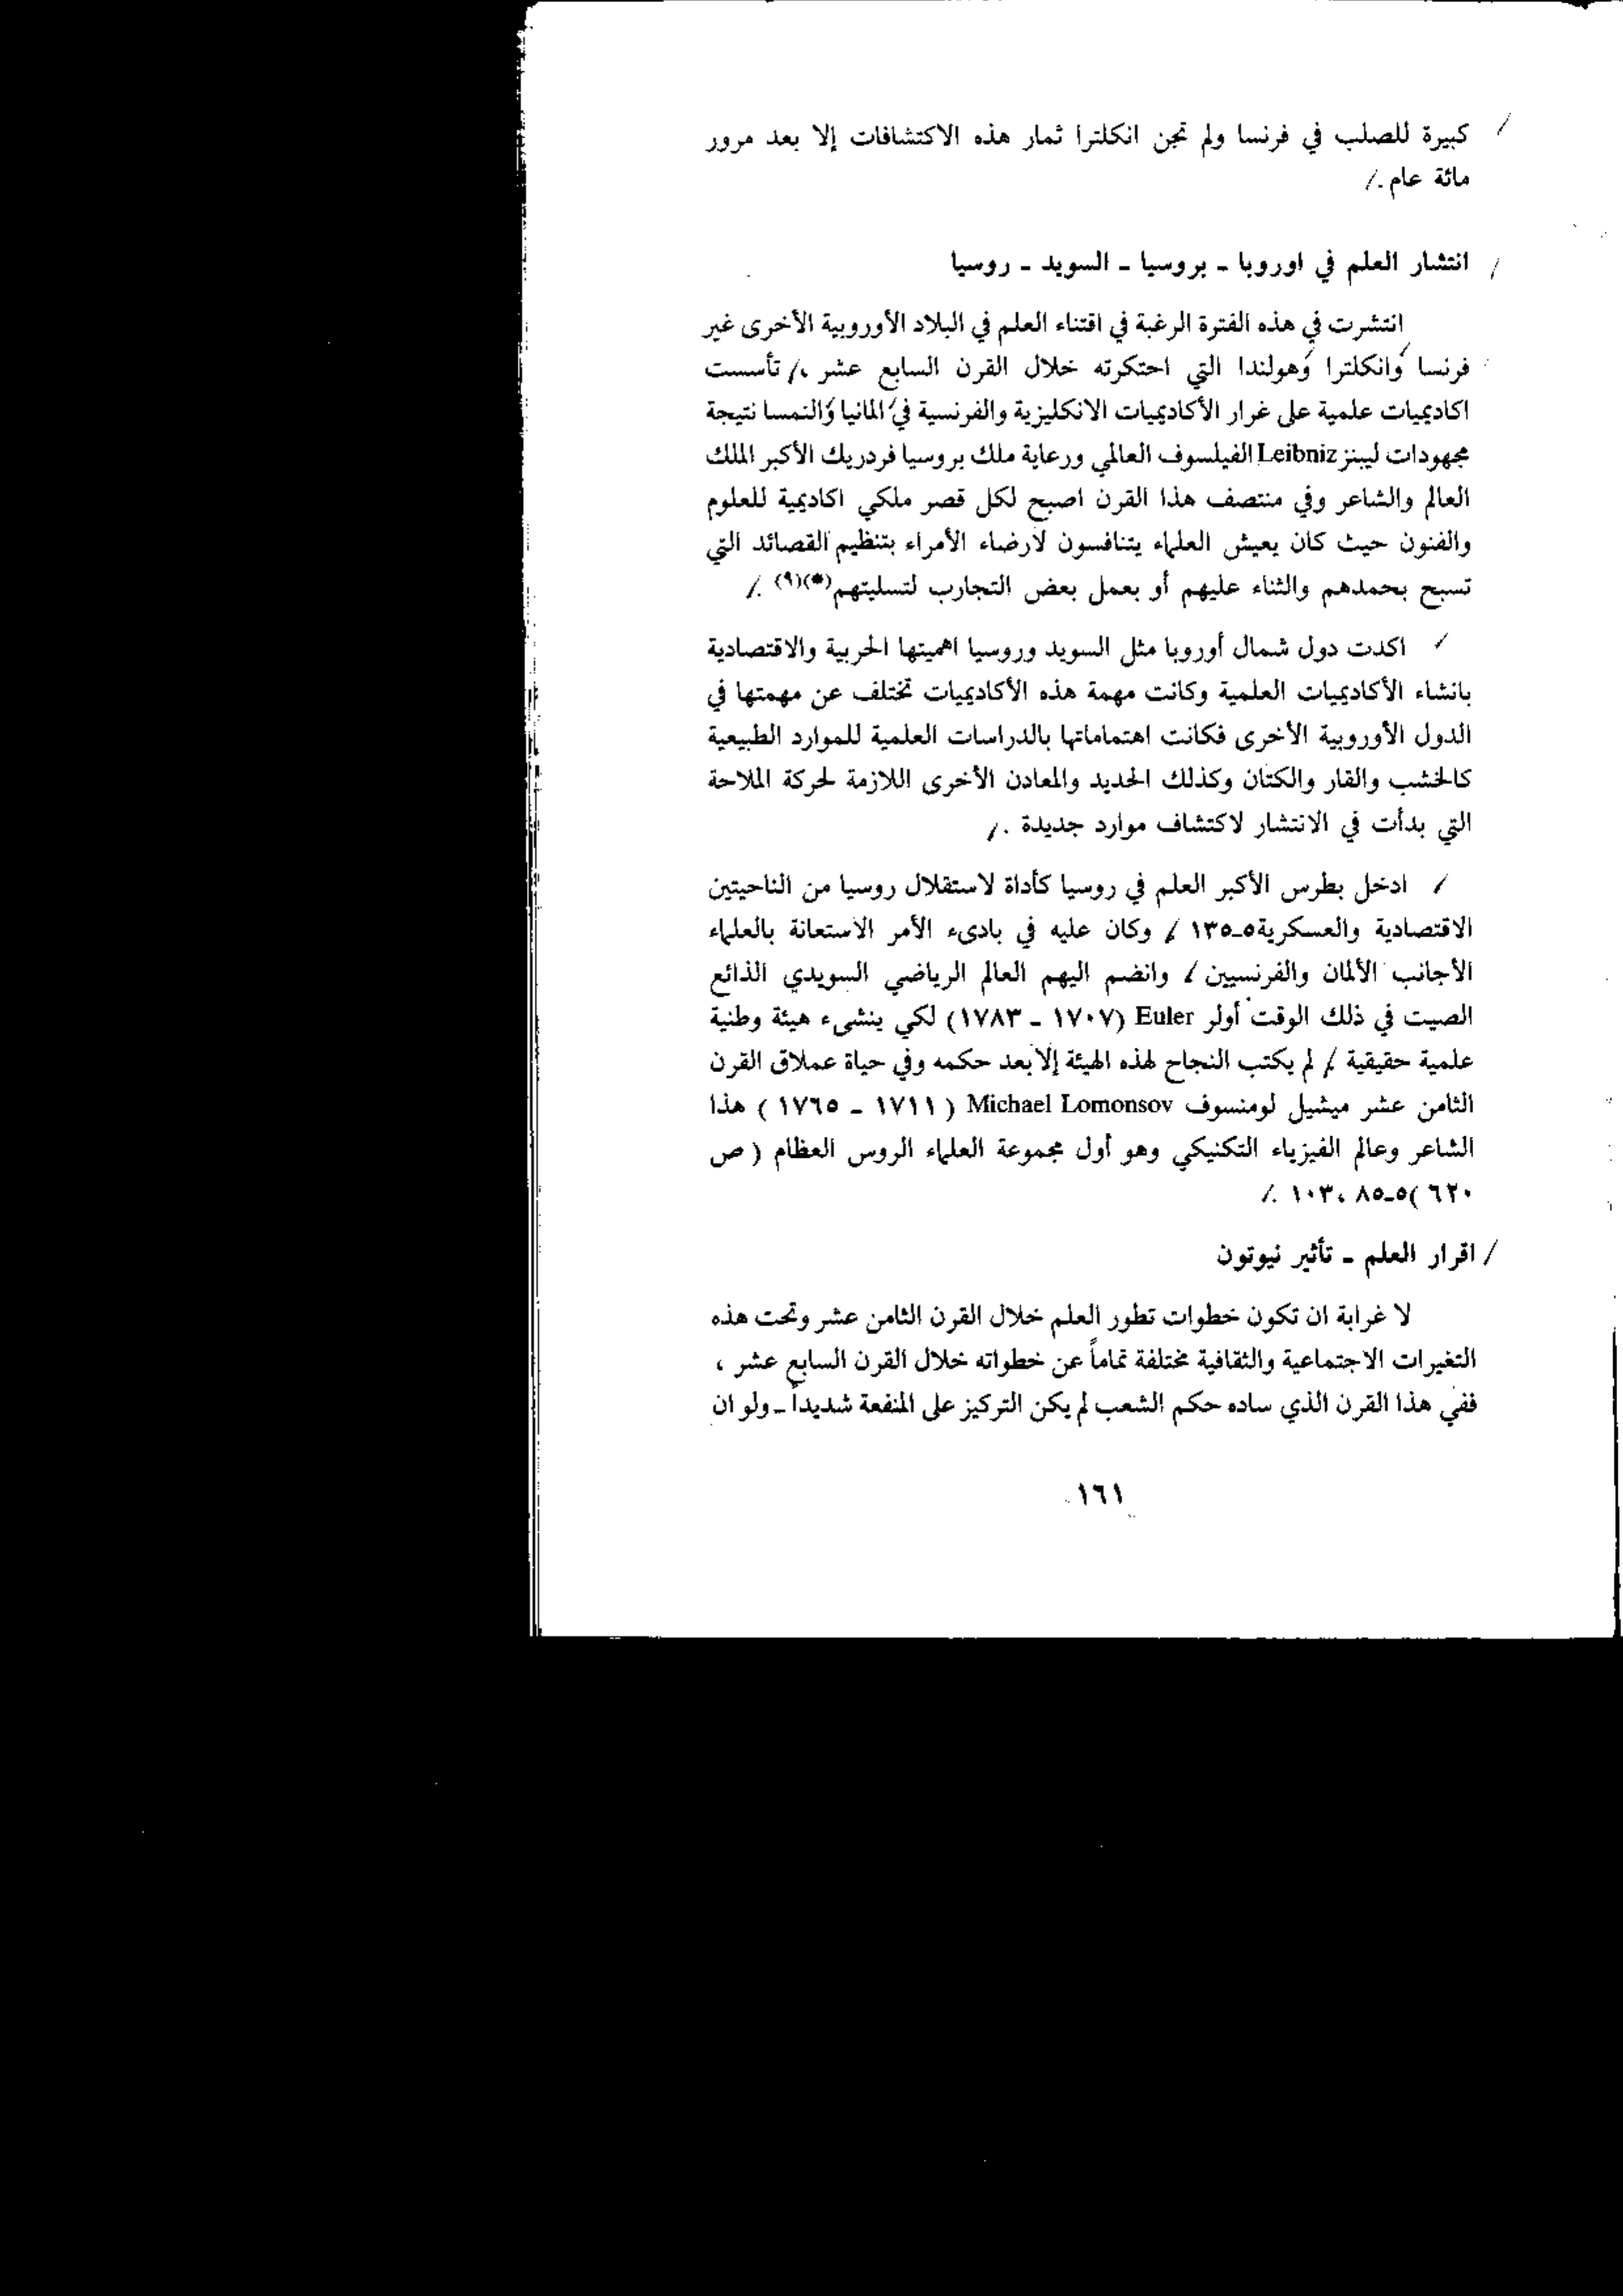 كبيرة للصلب في فرنسا ولم تجن انكلترا ثمار هذه الاكتشافات إلا بعد مرور
مائة عام ./
انتشار العلم في اوروبا - بروسيا - السويد - روسيا
انتشرت في هذه الفترة الرغبة في اقتناء العلم في البلاد الأوروبية الأخرى غير
فرنسا وانكلترا وهولندا التي احتكرته خلال القرن السابع عشر ،/ تأسست
اكاديميات علمية على غرار الأكاديميات الانكليزية والفرنسية في المانيا والنمسا نتيجة
مجهودات ليبنز Leibniz الفيلسوف العالمي ورعاية ملك بروسيا فردريك الأكبر الملك
العالم والشاعر وفي منتصف هذا القرن اصبح لكل قصر ملكي اكاديمية للعلوم
والفنون حيث كان يعيش العلماء يتنافسون لارضاء الأمراء بتنظيم القصائد التي
تسبح بحمدهم والثناء عليهم أو بعمل بعض التجارب لتسليتهم(*)(٩) ./
/ اكدت دول شمال أوروبا مثل السويد وروسيا اهميتها الحربية والاقتصادية
بانشاء الأكاديميات العلمية وكانت مهمة هذه الأكاديميات تختلف عن مهمتها في
الدول الأوروبية الأخرى فكانت اهتماماتها بالدراسات العلمية للموارد الطبيعية
كالخشب والقار والكتان وكذلك الحديد والمعادن الأخرى اللازمة لحركة الملاحة
التي بدأت في الانتشار لاكتشاف موارد جديدة ./
/ ادخل بطرس الأكبر العلم في روسيا كأداة لاستقلال روسيا من الناحيتين
الاقتصادية والعسكرية٥-١٣٥ / وكان عليه في بادىء الأمر الاستعانة بالعلماء
الأجانب الألمان والفرنسيين / وانضم اليهم العالم الرياضي السويدي الذائع
الصيت في ذلك الوقت أولر Euler (١٧٠٧ - ١٧٨٣) لكي ينشىء هيئة وطنية
علمية حقيقية / لم يكتب النجاح لهذه الهيئة إلا بعد حكمه وفي حياة عملاق القرن
الثامن عشر ميشيل لومنسوف Michael Lomonsov ( ١٧١١ - ١٧٦٥ ) هذا
الشاعر وعالم الفيزياء التكنيكي وهو أول مجموعة العلماء الروس العظام ( ص
٦٢٠ )٥-٨٥ ،١٠٣ ./
/ اقرار العلم - تأثير نيوتون
لا غرابة ان تكون خطوات تطور العلم خلال القرن الثامن عشر وتحت هذه
التغيرات الاجتماعية والثقافية مختلفة تماماً عن خطواته خلال القرن السابع عشر ،
ففي هذا القرن الذي ساده حكم الشعب لم يكن التركيز على المنفعة شديداً - ولو ان
١٦١